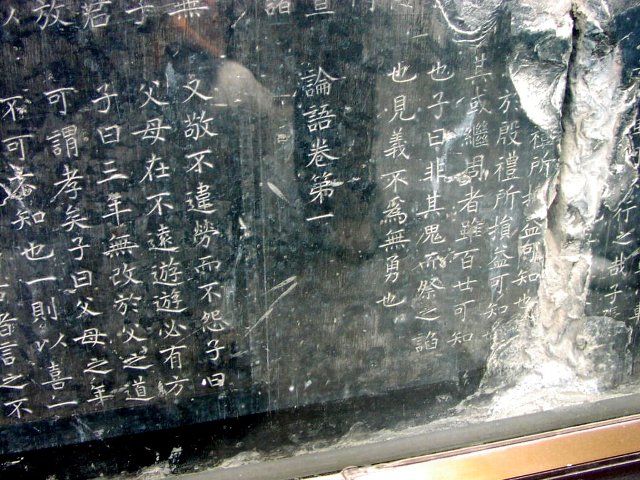 行之哉子
禮所損益可知也
於殷禮所損益可知
其或繼周者雖百世可知
也子曰非其鬼而祭之諂
也見義不爲無勇也
論語卷第一
無
又敬不違勞而不怨子曰
子
父母在不遠遊遊必有方
君
子曰三年無改於父之道
放
可謂孝矣子曰父母之年
不可不知也一則以喜一
者言之不